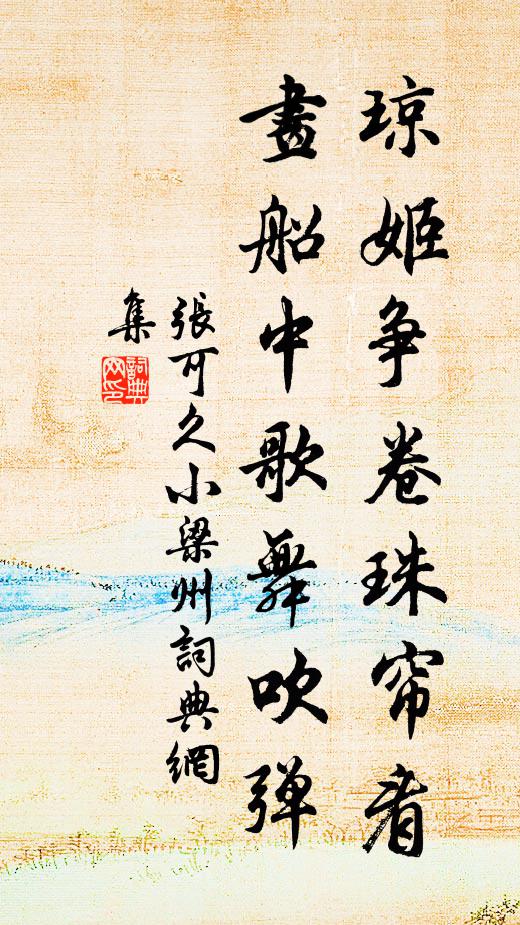 琼姬争卷珠帘看
畫船中歌舞吹弹
張可久小梁州詞典網
集
詞典網印